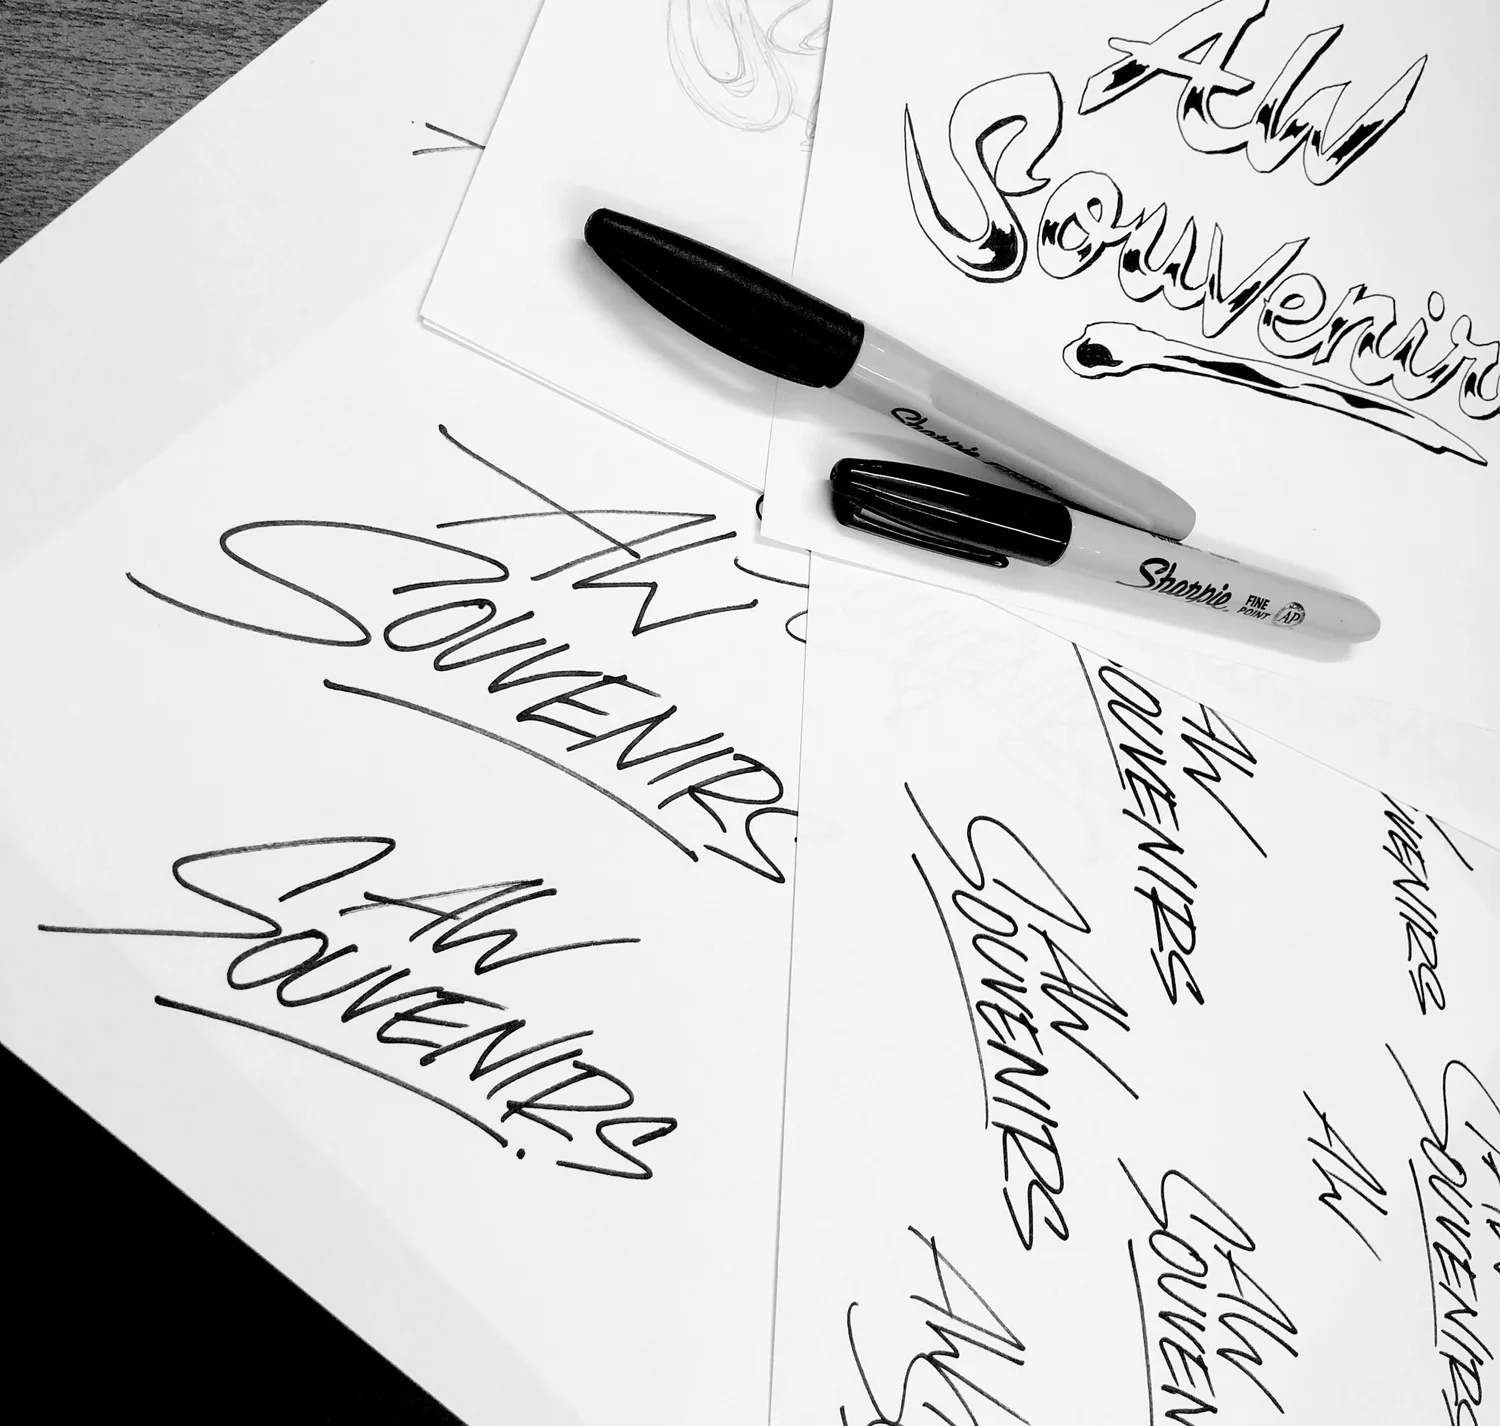 AW
Souvenir
Sharpie
Sharpie FINE POINT AP
AW
SOUVENIRS
AW
SOUVENIRS
AW
OUVENIRS
UVENIRS
AW
SOUVENIRS
AW
AW
SOUVENIRS
AW
SOUVEN
AW